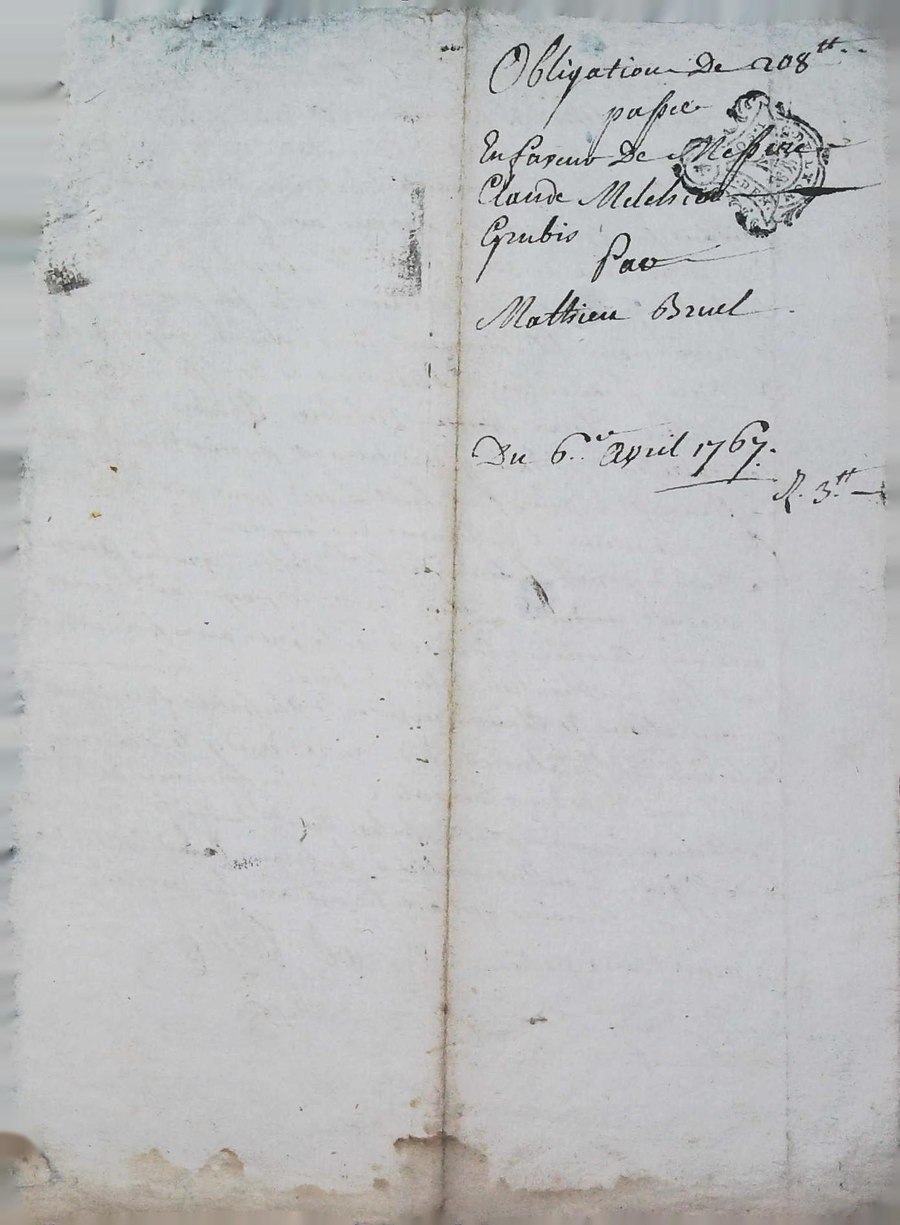 Obligation De 208tt..
passée
En faveur De Messire
Claude Melchior
Grubis
Par
Mathieu Bruel
Du 6e avril 1767.
R. 3tt